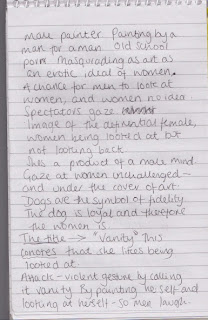 male painter. Painting by a
man for a man. Old school
porn. Masquerading as art as
an erotic ideal of women.
A chance for men to look at
women, and women no idea.
Spectators gaze
Image of the definitional female,
women being looked at but
not looking back
Shes a product of a male mind.
Gaze at women unchallenged -
and under the cover of art.
Dogs are the symbol of fidelity
The dog is loyal and therefore
the women is.
The title -> "Vanity" This
connotes that she likes being
looked at.
Attack - violent gesture by calling
it vanity. By painting her self and
looking at herself - so men laugh.